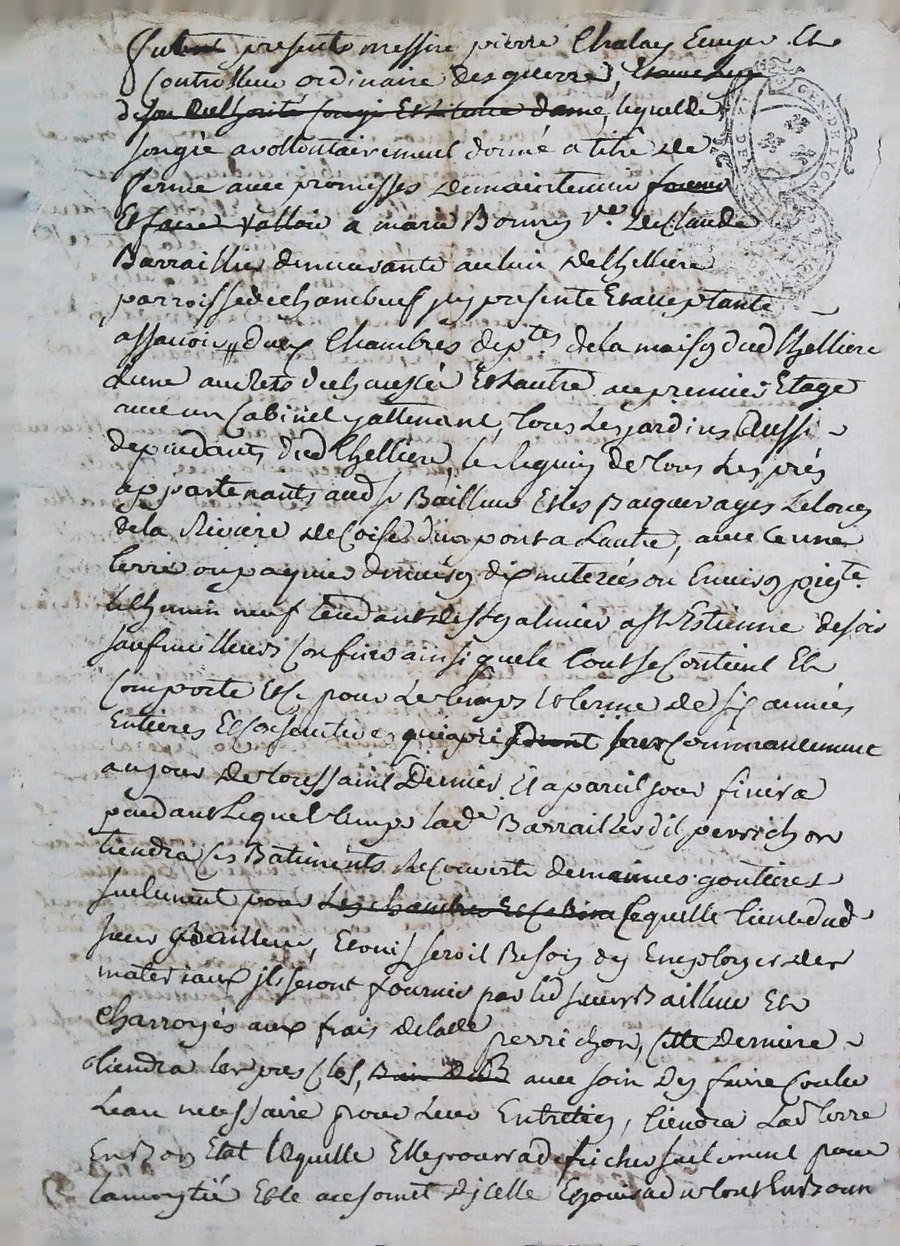 Fut present messire pierre Chalay Ecuyer Et
Controlleur ordinaire des guerres,
de son authorité lequel de
son gré a vollontairement donné a titre de
ferme avec promesses de maintenir
Et faire valloir a marie Bonnes v.e de Claude
Barraillier demeurante au lieu de Lhelliere
parroisse de chambeuf icy presente Et acceptante
assavoir deux Chambres dep.tes de la maison dud Lhelliere
Lune au Rets de chaussée Et Lautre au premier Etage
avec un Cabinet y attenant, tous Les jardins aussi
dependants dud Lhelliere, le Reguin de tous Les prés
appartenants aud s.r Bailleur Et les pasquerages Le long
de la Riviere de Coise d'un pont a Lautre, avec une
terre ou paquier d'environ dix meterées ou Environ
le chemin neuf tendant de st galmier a st Estienne de soir
sauf meilleurs Confins ainsi que le tout se Contient Et
Comporte Et ce pour Le temps Et terme de six années
Entieres Et Consecutives, qui ont pris Commancement
au jour de toussaint Dernier Et a pareil jour finira
pendant Lequel temps lad.e Barraillier dit perrichon
tiendra les Batiments Recouverts de mainnes goutieres
seulement pour les chambres Et Cabinet lequelle tient dud
sieur Bailleur, Et ou il seroit Besoin dy Employer des
materiaux ils seront fournis par led sieur Bailleur Et
charroyés aux frais de lade perrichon, Cette derniere
tiendra les prés Clos, avec soin dy faire Couler
Leau necessaire pour Leur Entretien, tiendra Lad terre
En Bon Etat laquelle Elle pourra defricher seulement pour
la moytié Et le au somet dycelle Et jouira du tout En Bon
GEN. DE LYON